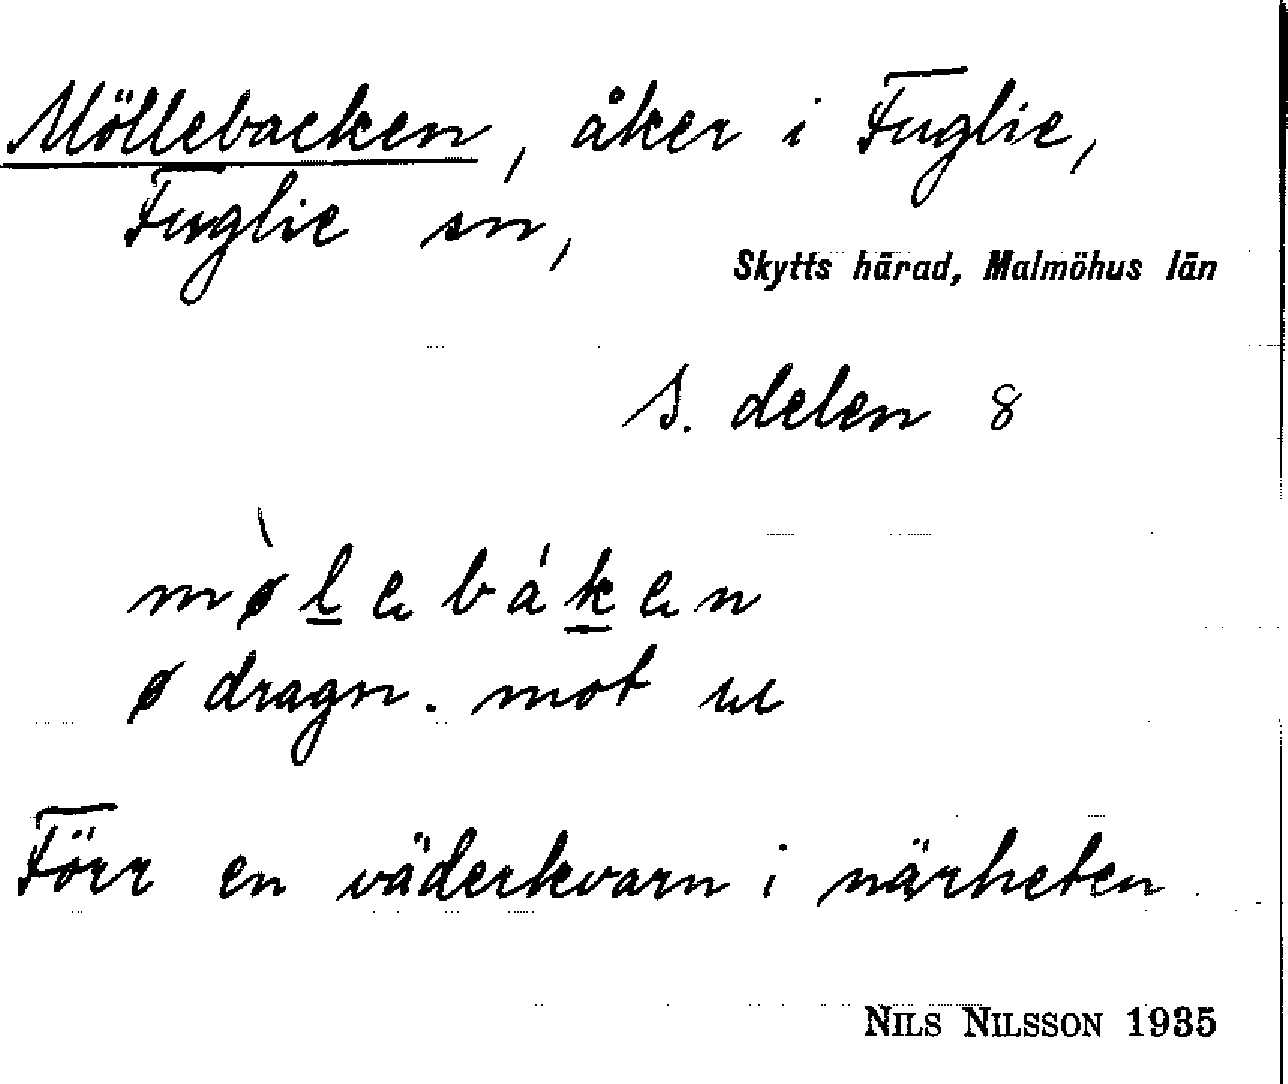 Möllebacken, åker i Fuglie,
Fuglie sn,
Skytts härad, Malmöhus län
S. delen 8
mø̀lebáken
ø dragn. mot
Förr en väderkvarn i närheten.
NILS NILSSON 1935